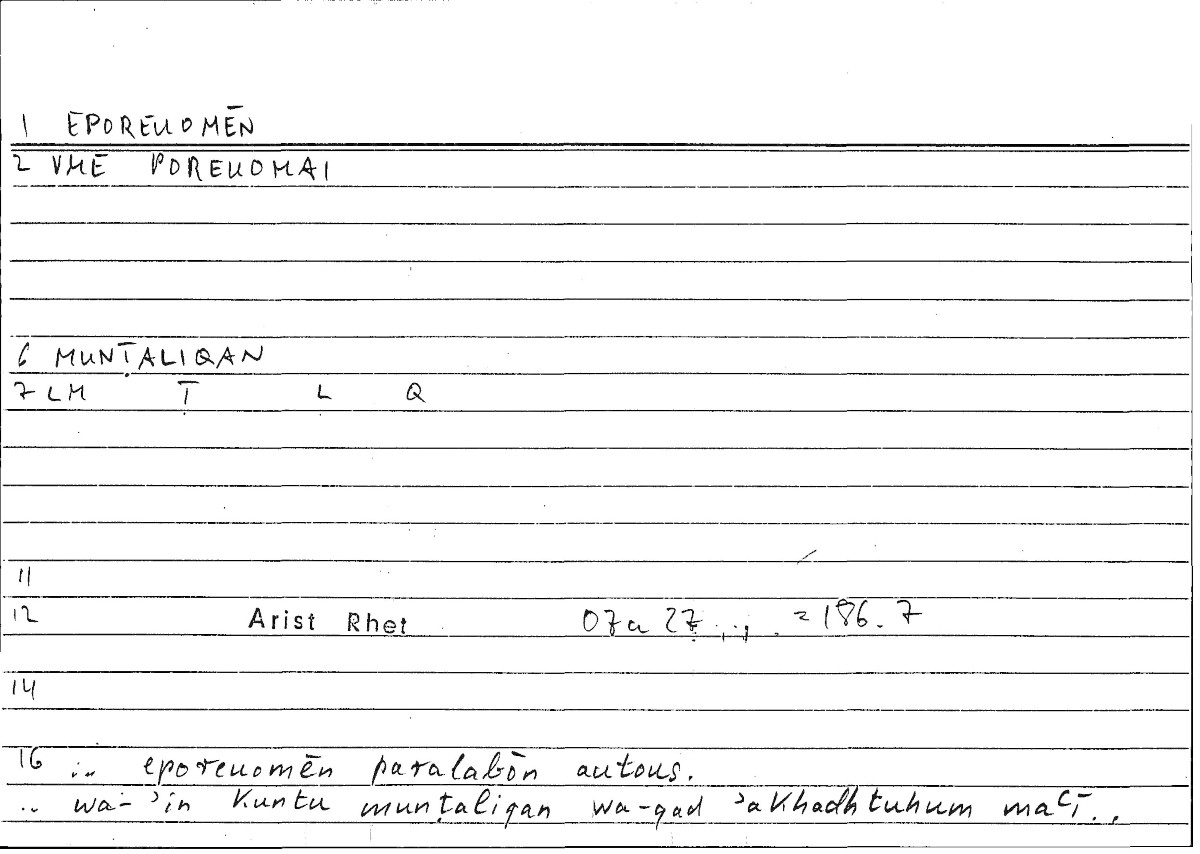 1 EPOREUOMĒN
2 VME POREUOMAI
6 MUNṬALIQAN
7 LM Ṭ L Q
11
12 Arist Rhet 07a 27 = 186. 7
14
16 ... eporeuomēn paralabōn autous.
.. wa-ʾin kuntu munṭaliqan wa-qad ʾakhadhtuhum maʿī..